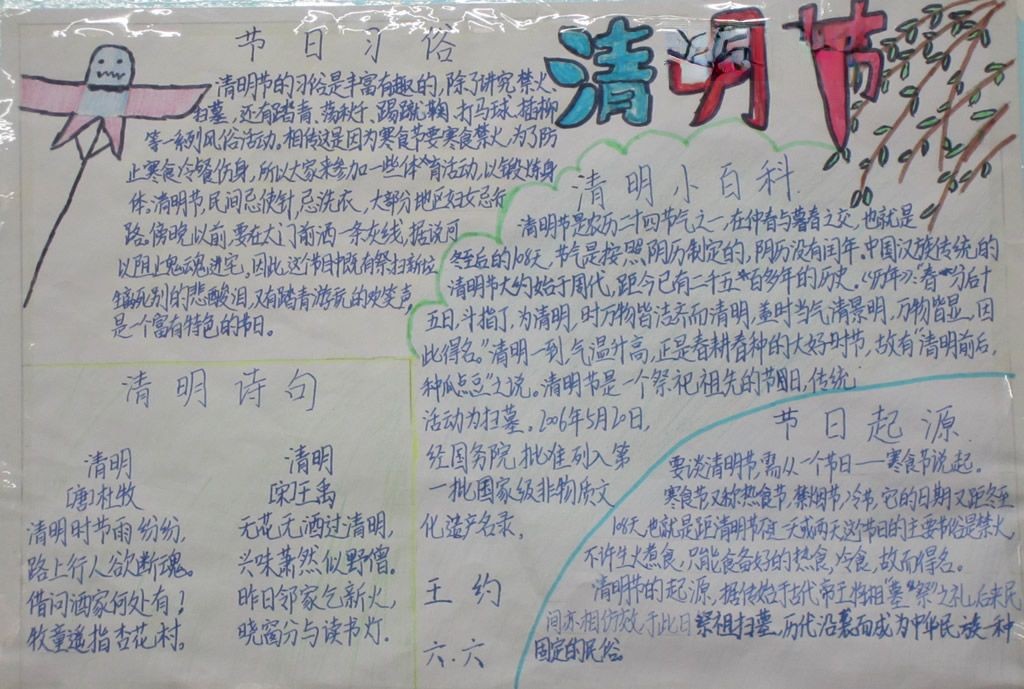 清明节
节日习俗
清明节的习俗是丰富有趣的,除了讲究禁火、
扫墓,还有踏青、荡秋千、踢蹴鞠、打马球、插柳
等一系列风俗活动。相传这是因为寒食节要寒食禁火,为了防
止寒食冷餐伤身,所以大家来参加一些体育活动,以锻炼身
体。清明节,民间忌使针,忌洗衣,大部分地区妇女忌行
路。傍晚以前,要在大门前洒一条灰线,据说可
以阻止鬼魂进宅。因此,这个节日中既有祭扫新坟
生离死别的悲酸泪,又有踏青游玩的欢笑声,
是一个富有特色的节日。
清明小百科
清明节是农历二十四节气之一,在仲春与暮春之交,也就是
冬至后的108天,节气是按照阴历制定的,阴历没有闰年。中国汉族传统的
清明节大约始于周代,距今已有二千五百多年的历史。《历书》:“春分后十
五日,斗指丁,为清明,时万物皆洁齐而清明,盖时当气清景明,万物皆显,因
此得名。”清明一到,气温升高,正是春耕春种的大好时节,故有“清明前后,
种瓜点豆”之说。清明节是一个祭祀祖先的节日,传统
活动为扫墓。2006年5月20日,
经国务院批准列入第
一批国家级非物质文
化遗产名录。
清明诗句
清明
[唐]杜牧
清明时节雨纷纷,
路上行人欲断魂。
借问酒家何处有!
牧童遥指杏花村。
清明
[宋]王禹
无花无酒过清明,
兴味萧然似野僧。
昨日邻家乞新火,
晓窗分与读书灯.
王约
六.六
节日起源
要谈清明节,需从一个节日——寒食节说起。
寒食节又称热食节,禁烟节,冷节,它的日期又距冬至
108天,也就是距清明节不过一天或两天这个节日的主要节俗是禁火,
不许生火煮食,只能食备好的热食,冷食,故而得名。
清明节的起源,据传始于古代帝王将相“墓祭”之礼,后来民
间亦相仿效,于此日祭祖扫墓,历代沿袭而成为中华民族一种
固定的民俗。